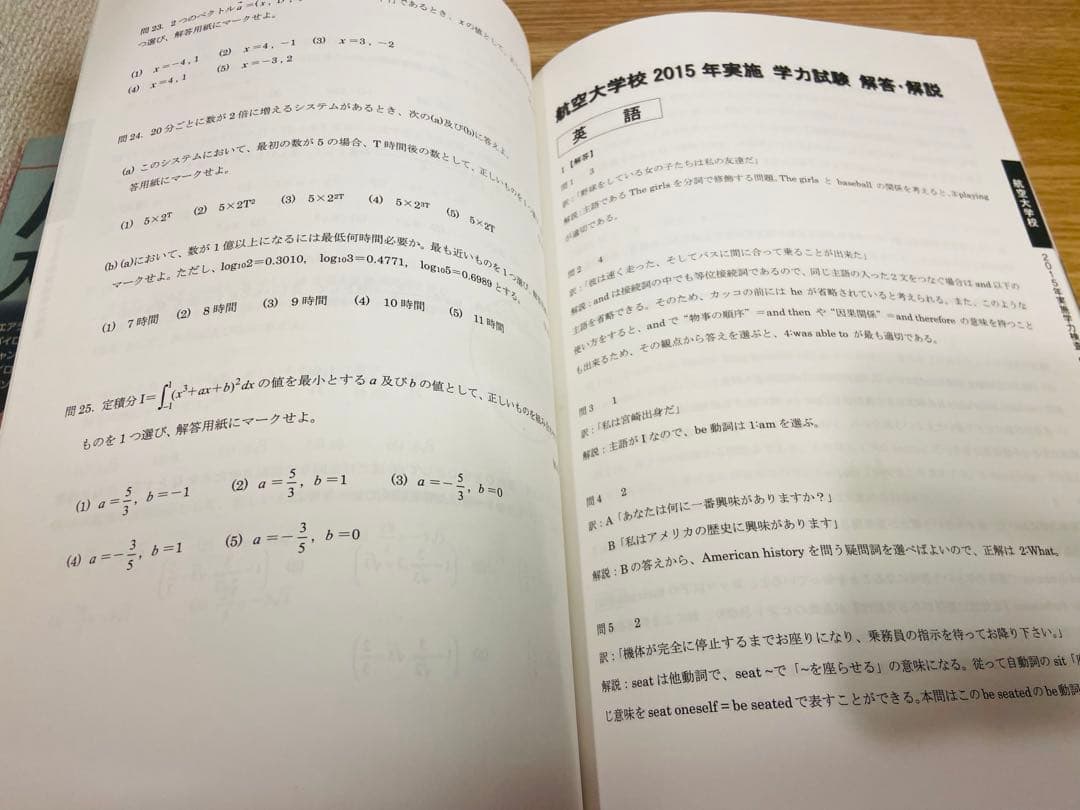 問23. 2つのベクトル
つ選び、解答用紙にマークせよ。
(1) x=−4, 1 (2) x=4, −1 (3) x=3, −2
(4) x=4, 1 (5) x=−3, 2
問24. 20分ごとに数が2倍に増えるシステムがあるとき、次の(a)及び(b)に答えよ。
(a) このシステムにおいて、最初の数が5の場合、T時間後の数として、正しいものを1つ選び、
答用紙にマークせよ。
(1) 5×2ᵀ (2) 5×2ᵀ² (3) 5×2²ᵀ (4) 5×2³ᵀ (5) 5×2T
(b) (a)において、数が1億以上になるには最低何時間必要か。最も近いものを1つ選び、
マークせよ。ただし、log₁₀2=0.3010, log₁₀3=0.4771, log₁₀5=0.6989とする。
(1) 7時間 (2) 8時間 (3) 9時間 (4) 10時間 (5) 11時間
問25. 定積分 I=∫₋₁¹(x³+ax+b)²dx の値を最小とする a 及び b の値として、正しいものを
ものを1つ選び、解答用紙にマークせよ。
(1) a=5/3, b=−1 (2) a=5/3, b=1 (3) a=−5/3, b=0
(4) a=−3/5, b=1 (5) a=−3/5, b=0
航空大学校 2015年実施 学力試験 解答・解説
英 語
1【解答】
問1 3
訳:「野球をしている女の子たちは私の友達だ」
解説:主語である The girls を分詞で修飾する問題。The girls と baseball の関係を考えると、3:playing
が適切である。
問2 4
訳:「彼は速く走った、そしてバスに間に合って乗ることが出来た」
解説:and は接続詞の中でも等位接続詞であるので、同じ主語の入った2文をつなぐ場合は and 以下の
主語を省略できる。そのため、カッコの前には he が省略されていると考えられる。また、このような
使い方をすると、and で“物事の順序”=and then や“因果関係”=and therefore の意味を持つこと
も出来るため、その観点から答えを選ぶと、4:was able to が最も適切である。
問3 1
訳:「私は宮崎出身だ」
解説:主語が I なので、be 動詞は 1:am を選ぶ。
問4 2
訳:A「あなたは何に一番興味がありますか?」
B「私はアメリカの歴史に興味があります」
解説:Bの答えから、American history を問う疑問詞を選べばよいので、正解は 2:What。
問5 2
訳:「機体が完全に停止するまでお座りになり、乗務員の指示を待ってお降り下さい。」
解説:seat は他動詞で、seat ~で「~を座らせる」の意味になる。従って自動詞の sit「
じ意味を seat oneself = be seated で表すことができる。本問はこの be seated の be 動詞
航空大学校
2015年実施学力検査